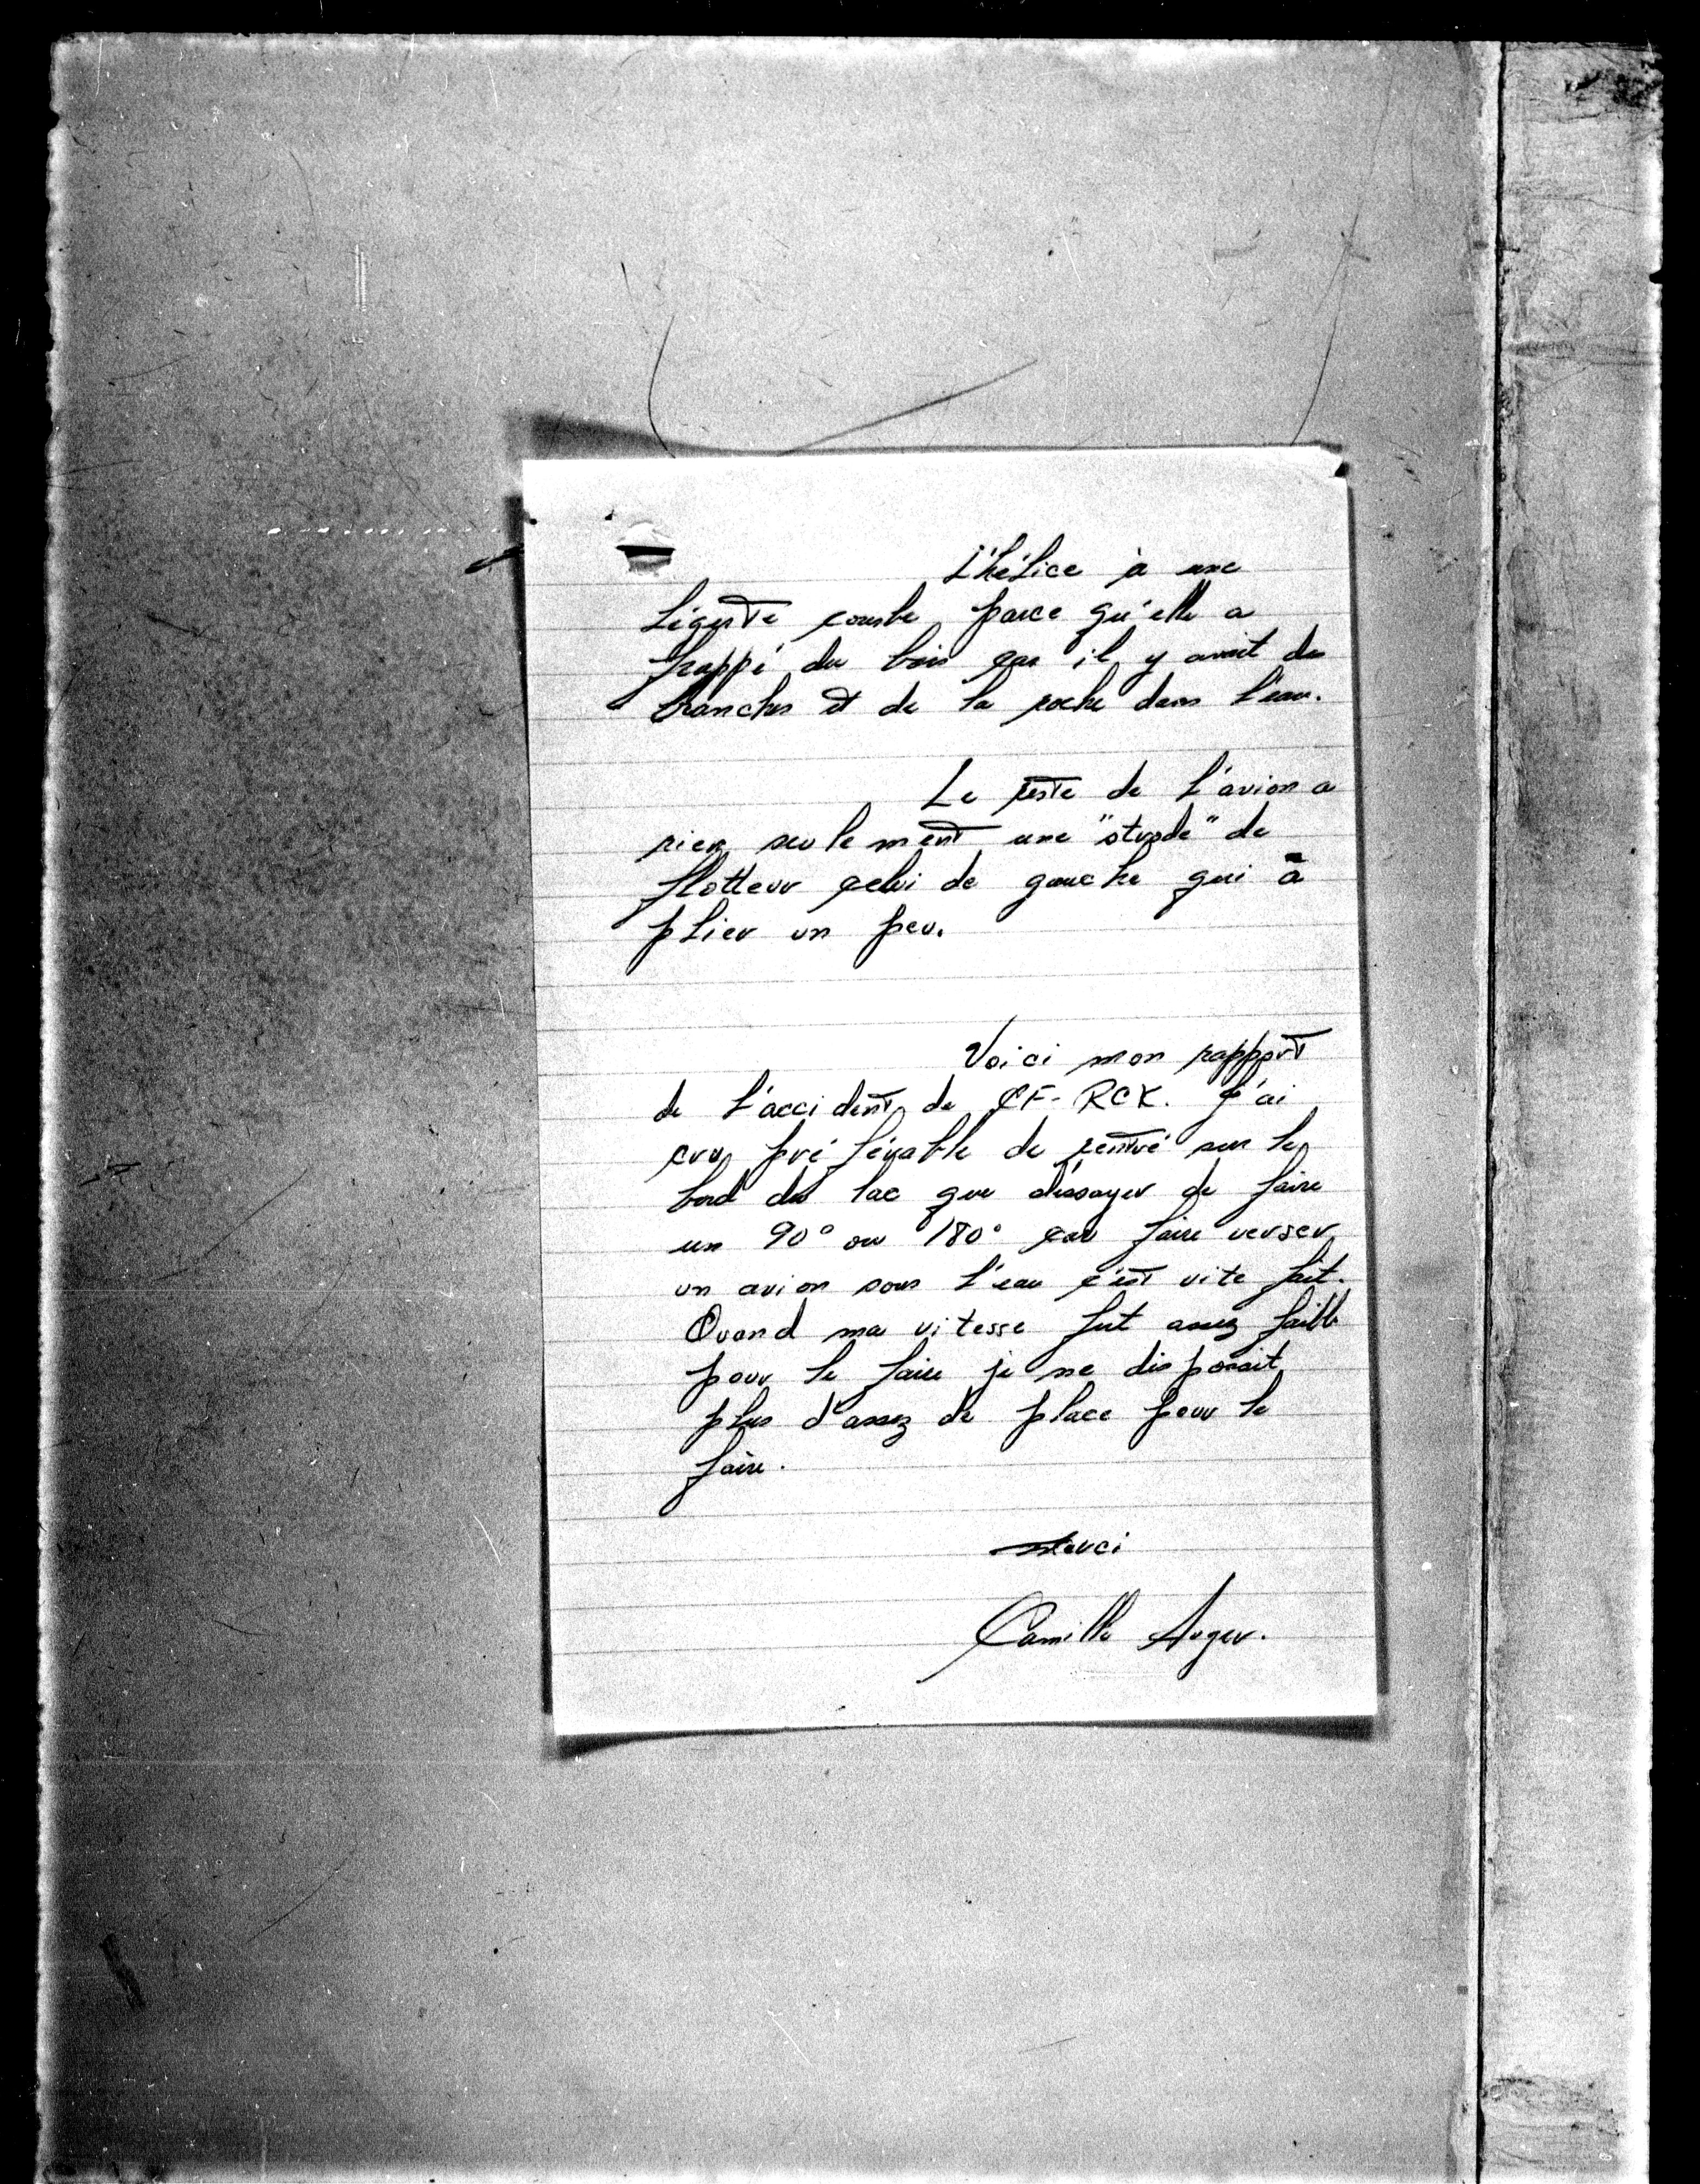 L'hélice à une
légerte courbe parce qu'elle a
frappé du bois car il y avait des
branches et de la roche dans l'eau.
Le reste de l'avion a
rien seulement une "strode" de
flotteur celui de gauche qui a
plier un peu.
Voici mon rapport
de l'accident de CF-RCK. J'ai
cru préférable de rentré sur le
bord du lac que d'essayer de faire
un 90° ou 180° car faire verser
un avion sous l'eau c'est vite fait.
Quand ma vitesse fut assez faible
pour le faire je ne disposait
plus d'assez de place pour le
faire.
Merci
Camille Auger.